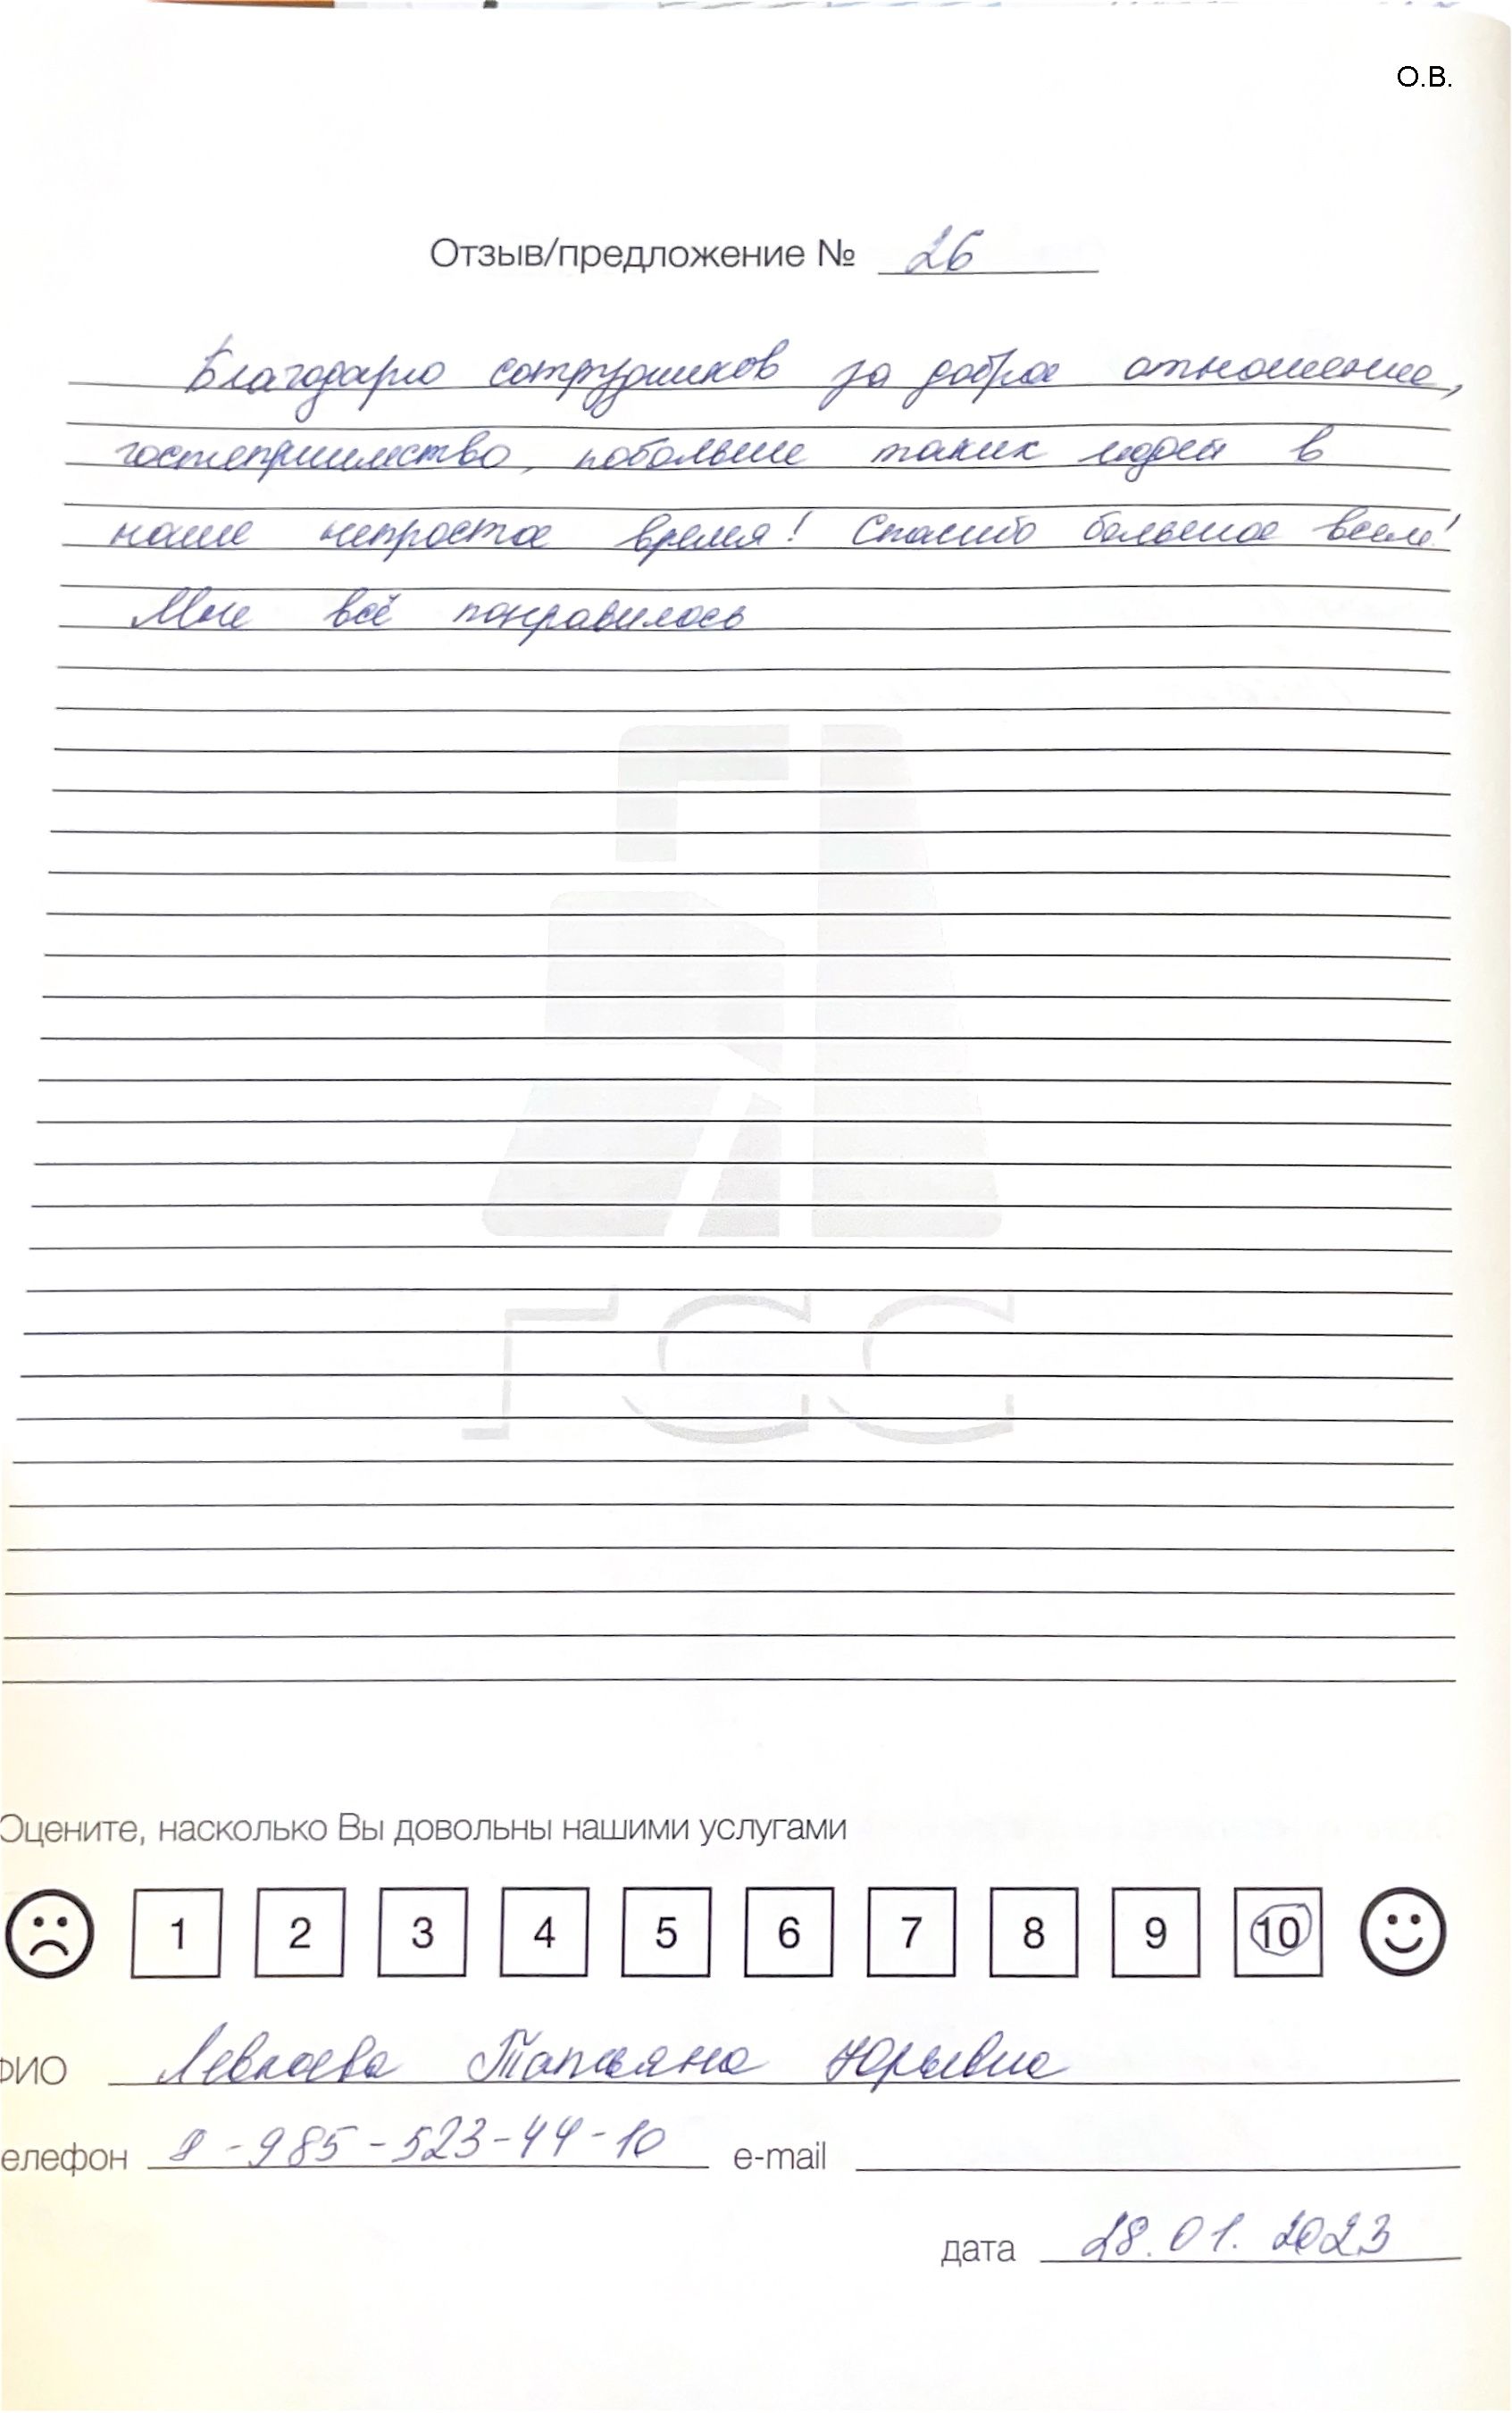 О.В.
Отзыв/предложение № 26
Благодарю сотрудников за доброе отношение,
гостеприимство, побольше таких людей в
наше непростое время! Спасибо большое всем!
Мне всё понравилось
ГСС
Оцените, насколько Вы довольны нашими услугами
1 2 3 4 5 6 7 8 9 10
ФИО Левкоева Татьяна Юрьевна
елефон 8-985-523-44-10 e-mail
дата 28.01.2023